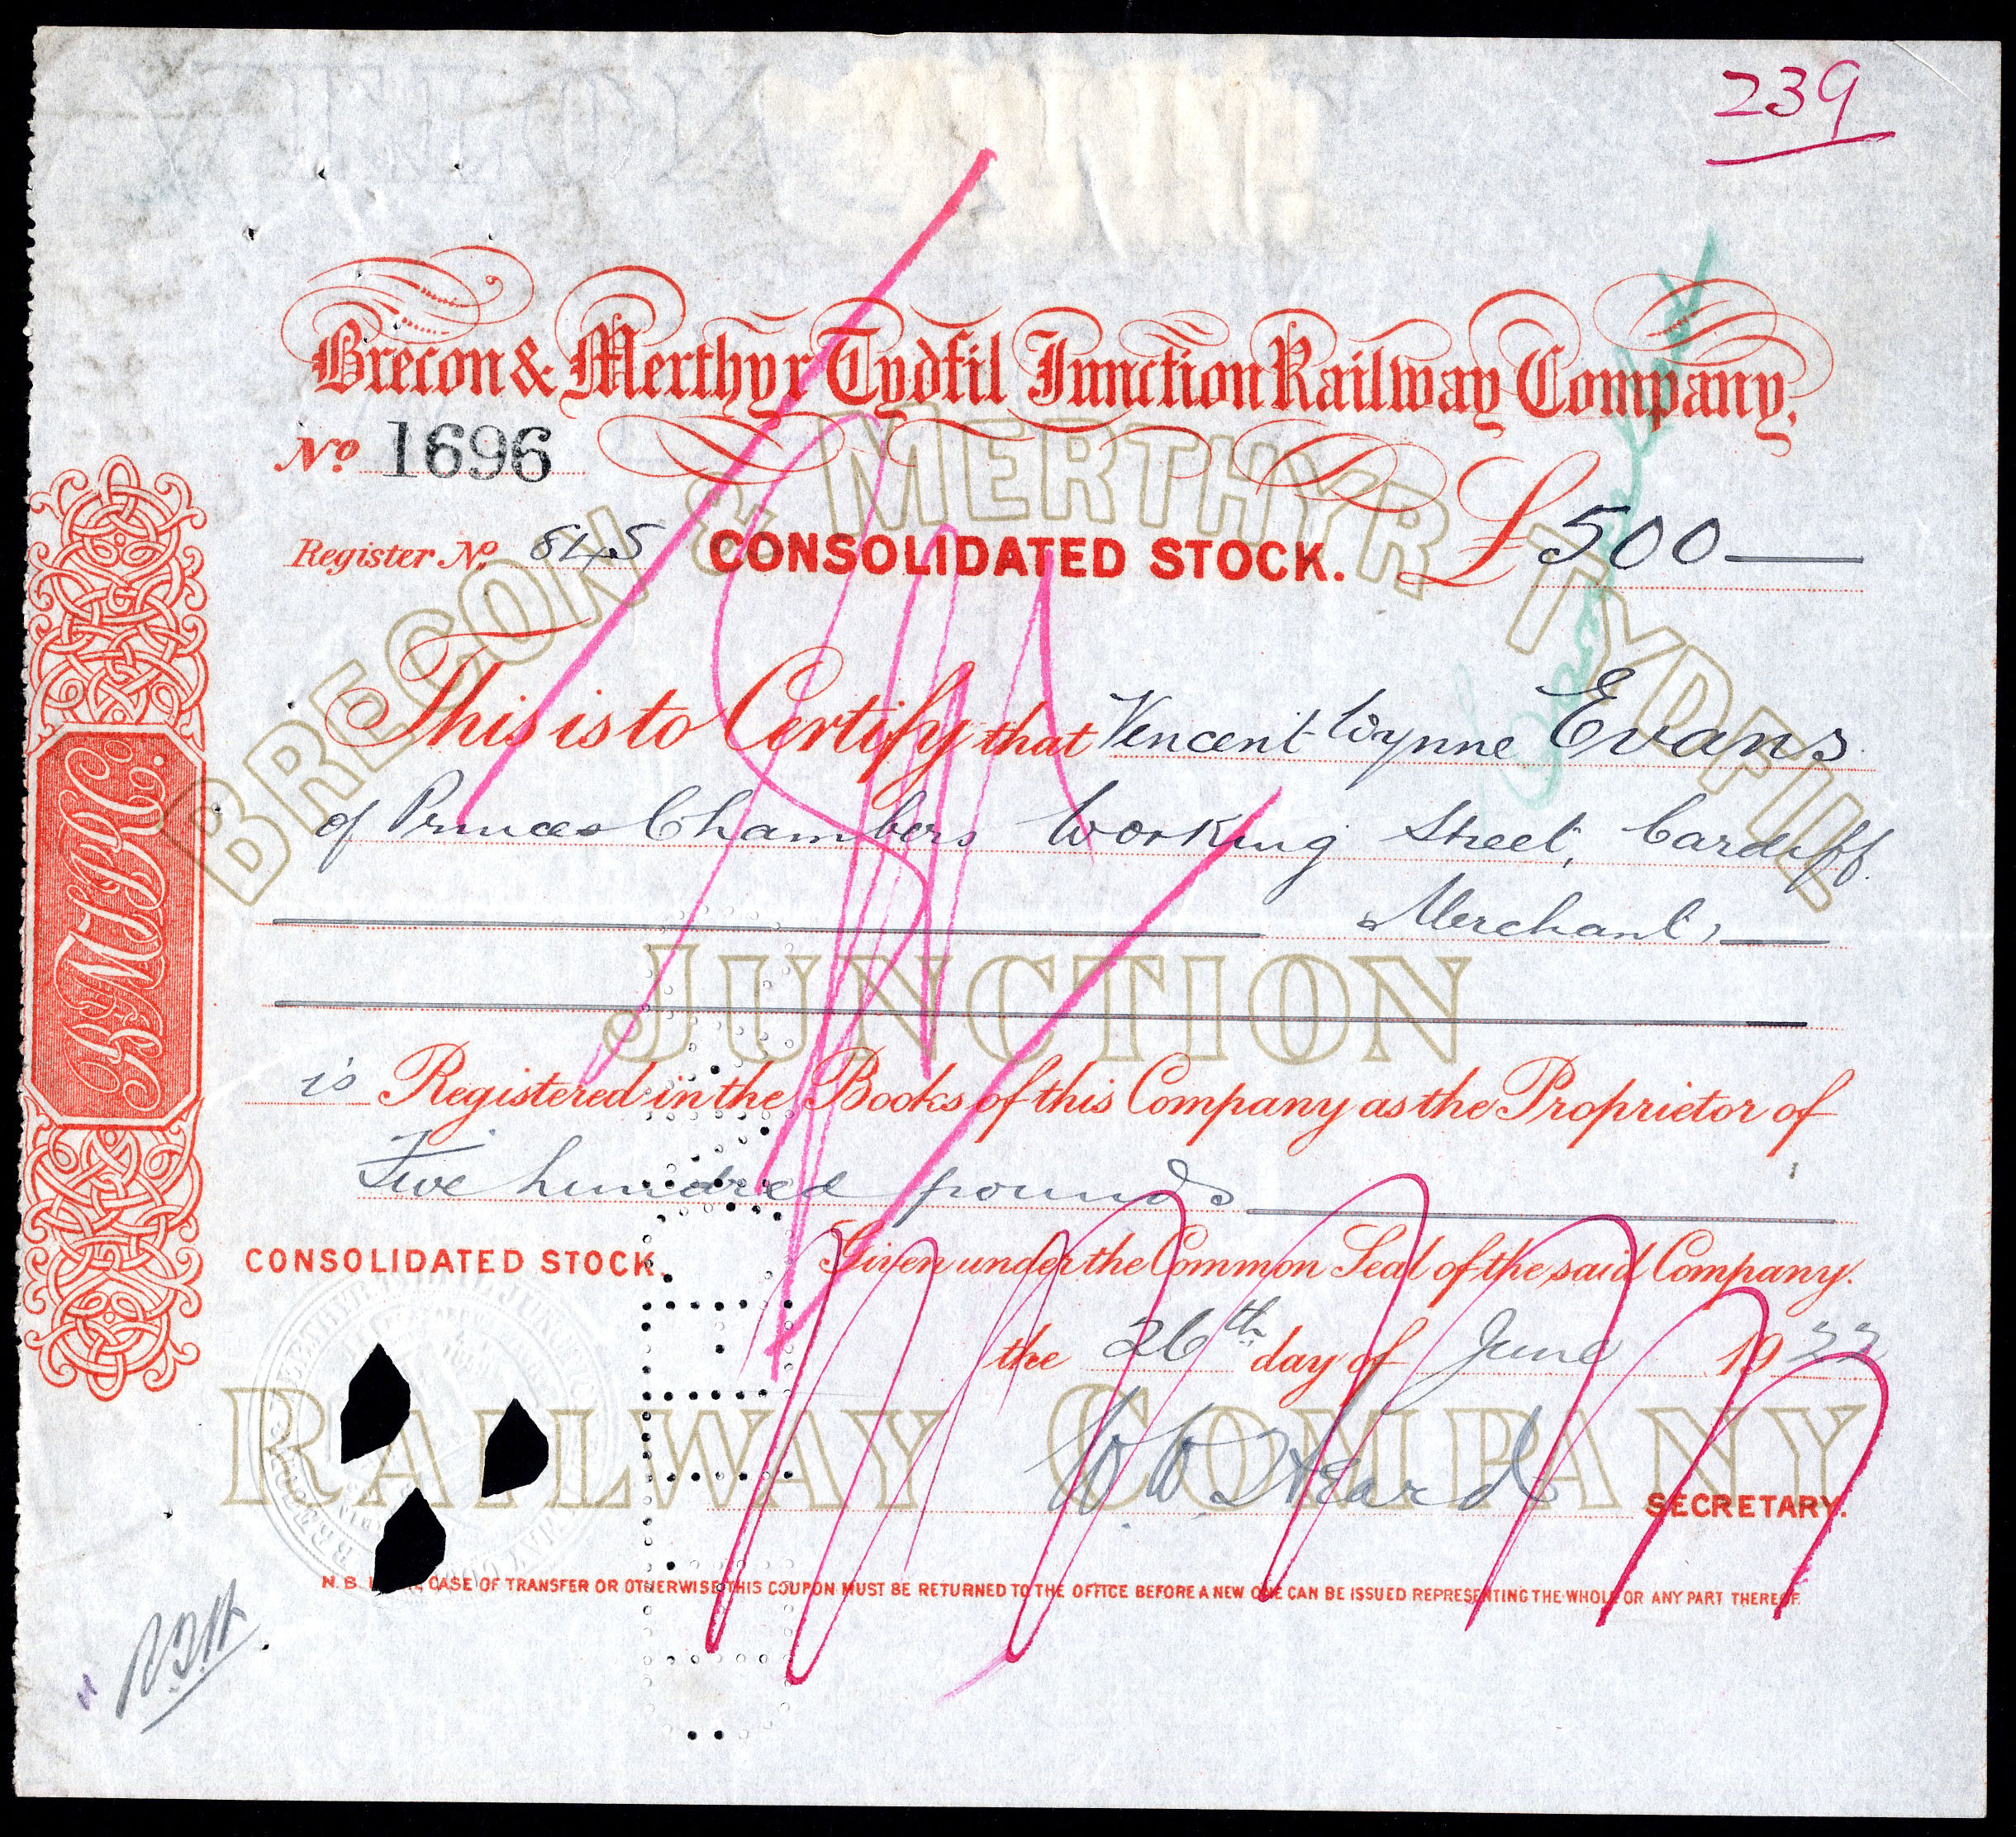 239
Brecon & Merthyr Tydfil Junction Railway Company.
No 1696
Register No. 845 CONSOLIDATED STOCK. £ 500
BRECON & MERTHYR TYDFIL
This is to Certify that Vencent Wynne Evans
of Princes Chambers Working Street, Cardiff.
Merchant,
JUNCTION
B.M.T.J.R.Co.
is Registered in the Books of this Company as the Proprietor of
Five hundred pounds
CONSOLIDATED STOCK. Given under the Common Seal of the said Company.
the 26th day of June 1922
RAILWAY COMPANY
W W Heard SECRETARY.
N.B. CASE OF TRANSFER OR OTHERWISE THIS COUPON MUST BE RETURNED TO THE OFFICE BEFORE A NEW ONE CAN BE ISSUED REPRESENTING THE WHOLE OR ANY PART THEREOF.